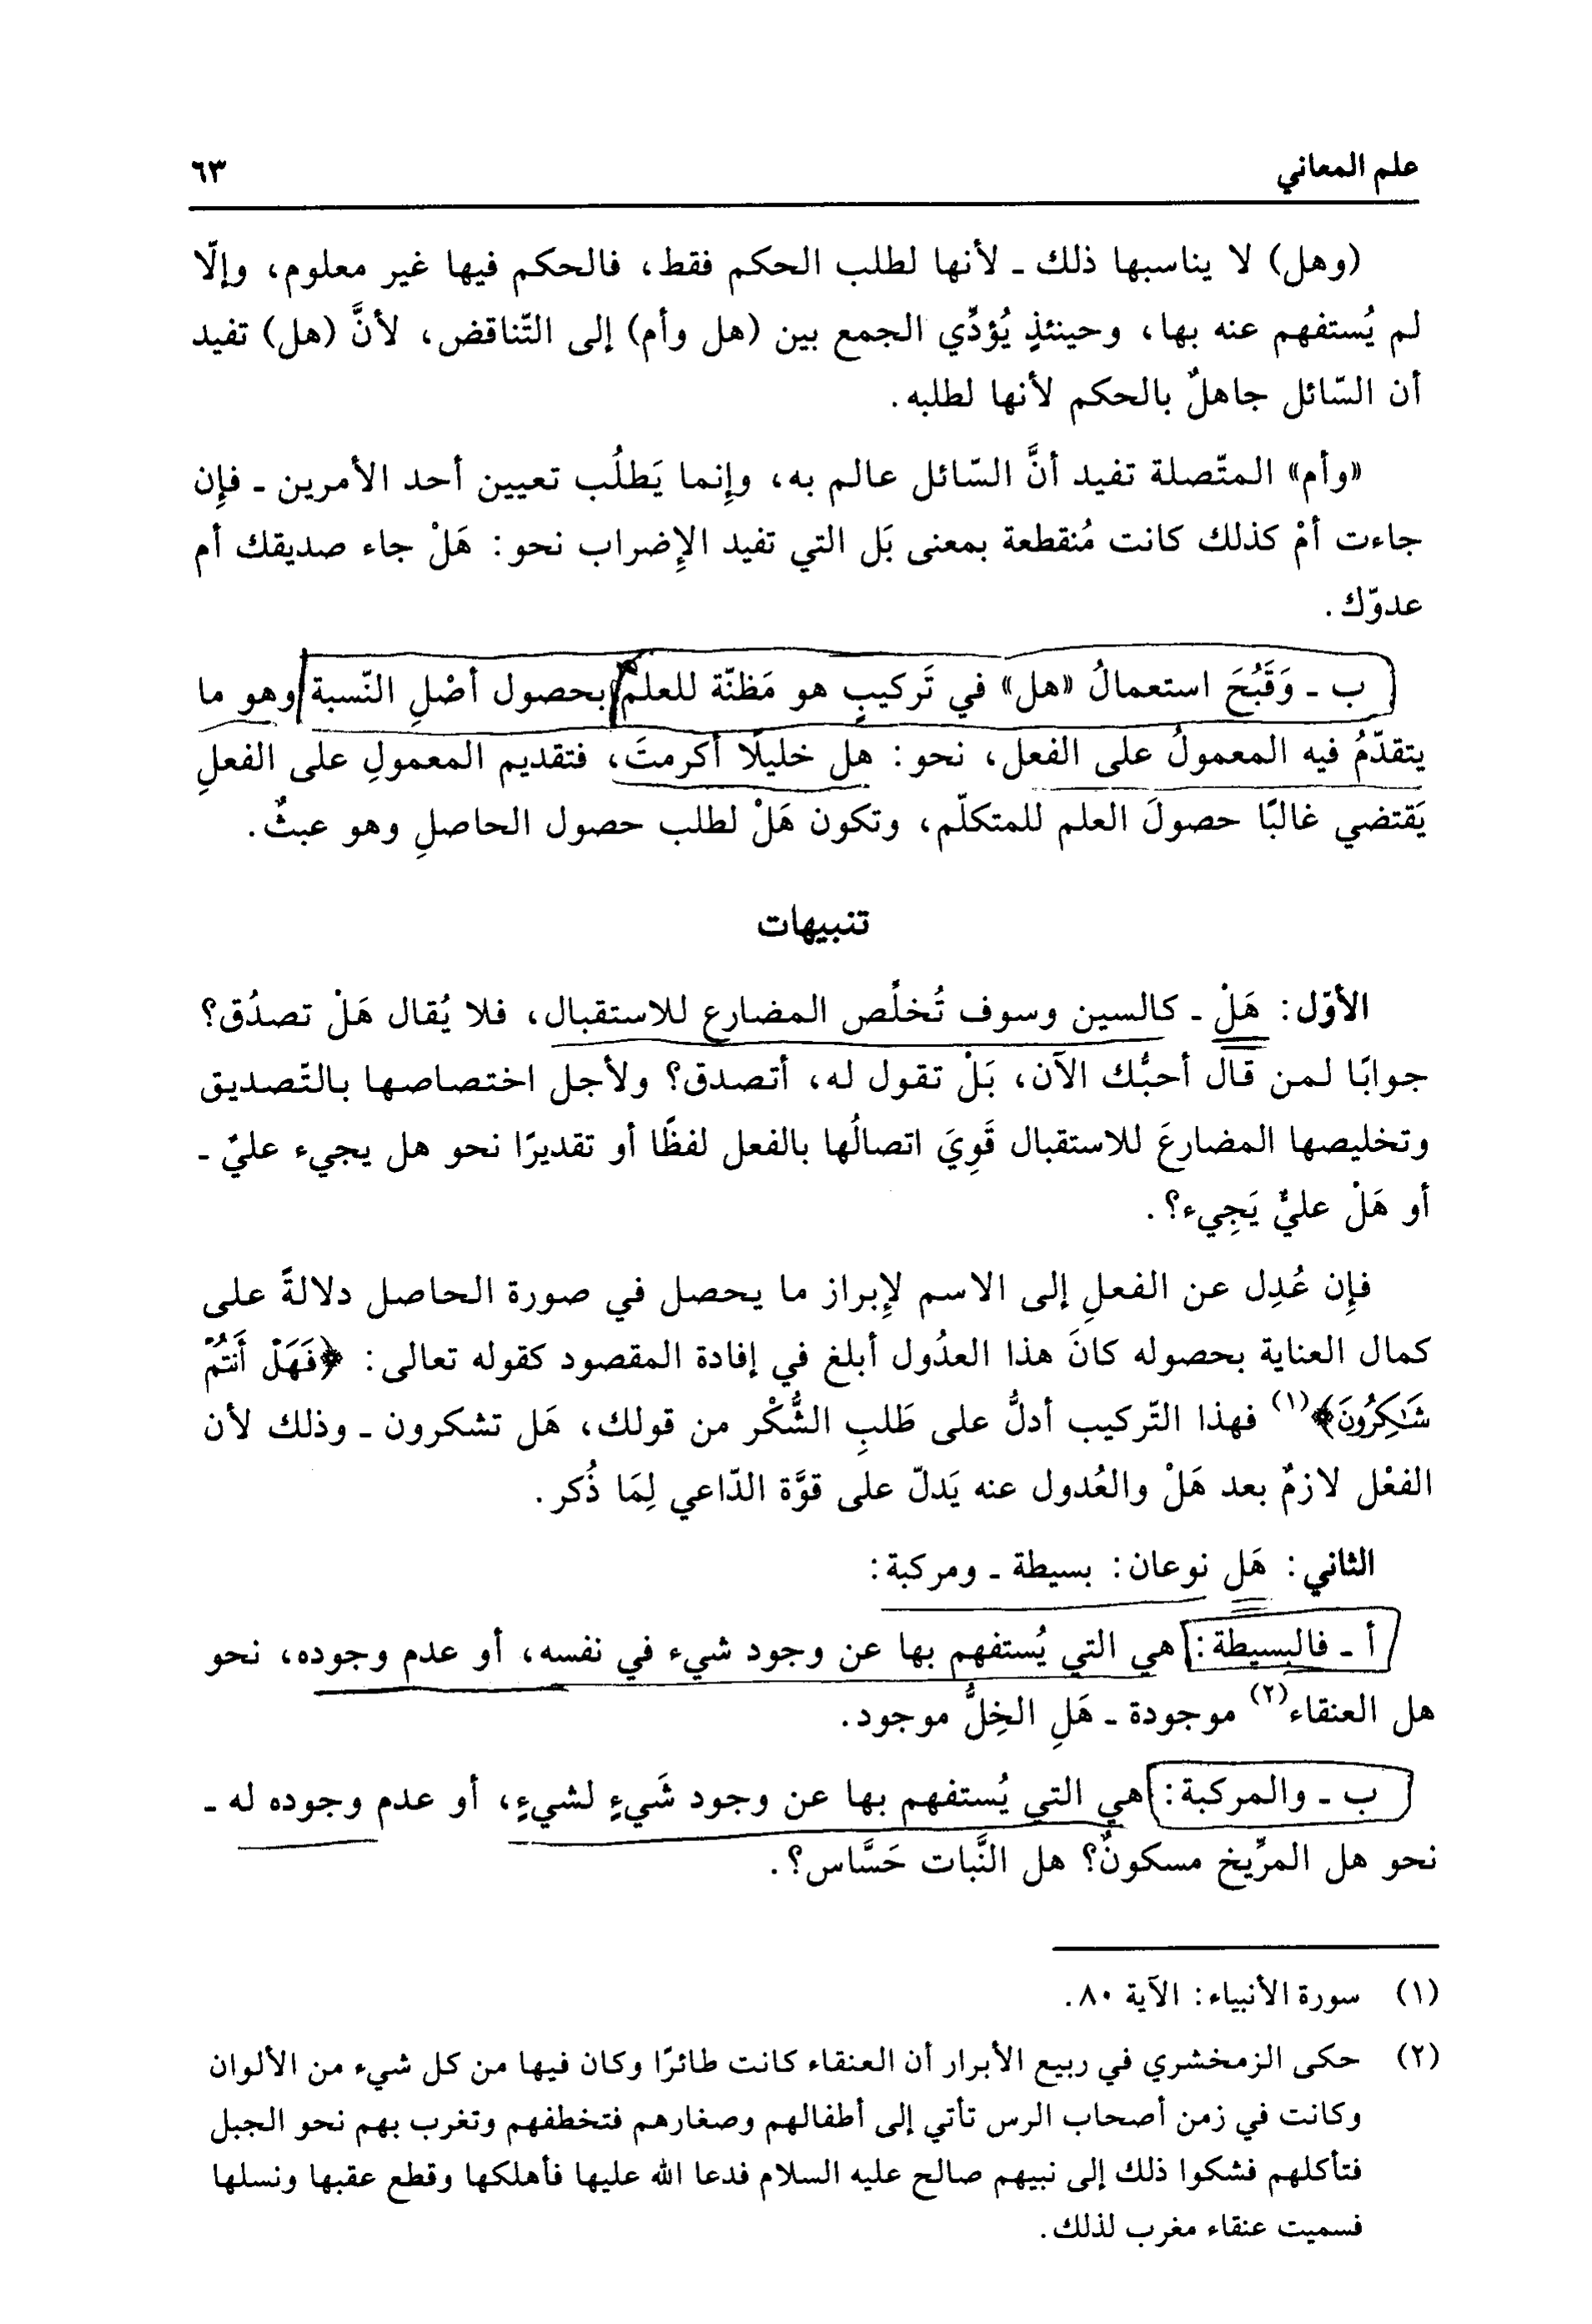 علم المعاني
٦٣
(وهل) لا يناسبها ذلك ـ لأنها لطلب الحكم فقط، فالحكم فيها غير معلوم، وإلّا
لم يُستفهم عنه بها، وحينئذٍ يُؤدِّي الجمع بين (هل وأم) إلى التّناقض، لأنَّ (هل) تفيد
أن السّائل جاهلٌ بالحكم لأنها لطلبه.
«وأم» المتّصلة تفيد أنَّ السّائل عالم به، وإِنما يَطلُب تعيين أحد الأمرين ـ فإِن
جاءت أمْ كذلك كانت مُنقطعة بمعنى بَل التي تفيد الإِضراب نحو: هَلْ جاء صديقك أم
عدوّك.
ب ـ وَقَبُحَ استعمالُ «هل» في تَركيبٍ هو مَظنّة للعلم بحصول أصْلِ النّسبة وهو ما
يتقدّمُ فيه المعمولُ على الفعل، نحو: هل خليلًا أكرمتَ، فتقديم المعمولِ على الفعلِ
يَقتضي غالبًا حصولَ العلم للمتكلّم، وتكون هَلْ لطلب حصول الحاصلِ وهو عبثٌ.
تنبيهات
الأوّل: هَلْ ـ كالسين وسوف تُخلِّص المضارع للاستقبال، فلا يُقال هَلْ تصدُق؟
جوابًا لمن قال أحبُّك الآن، بَلْ تقول له، أتصدق؟ ولأجل اختصاصها بالتّصديق
وتخليصها المضارعَ للاستقبال قَوِيَ اتصالُها بالفعل لفظًا أو تقديرًا نحو هل يجيء عليّ ـ
أو هَلْ عليٌّ يَجِيء؟.
فإِن عُدِل عن الفعلِ إلى الاسم لإِبراز ما يحصل في صورة الحاصل دلالةً على
كمال العناية بحصوله كانَ هذا العدُول أبلغ في إفادة المقصود كقوله تعالى: ﴿فَهَلْ أَنتُمْ
شَٰكِرُونَ﴾(١) فهذا التّركيب أدلُّ على طَلبِ الشُّكْر من قولك، هَل تشكرون ـ وذلك لأن
الفعْل لازمٌ بعد هَلْ والعُدول عنه يَدلّ على قوَّة الدّاعي لِمَا ذُكر.
الثاني: هَل نوعان: بسيطة ـ ومركبة:
أ ـ فالبسيطة: هي التي يُستفهم بها عن وجود شيء في نفسه، أو عدم وجوده، نحو
هل العنقاء(٢) موجودة ـ هَلِ الخِلُّ موجود.
ب ـ والمركبة: هي التي يُستفهم بها عن وجود شَيءٍ لشيءٍ، أو عدم وجوده له ـ
نحو هل المرِّيخ مسكونٌ؟ هل النَّبات حَسَّاس؟.
(١) سورة الأنبياء: الآية ٨٠.
(٢) حكى الزمخشري في ربيع الأبرار أن العنقاء كانت طائرًا وكان فيها من كل شيء من الألوان
وكانت في زمن أصحاب الرس تأتي إلى أطفالهم وصغارهم فتخطفهم وتغرب بهم نحو الجبل
فتأكلهم فشكوا ذلك إلى نبيهم صالح عليه السلام فدعا الله عليها فأهلكها وقطع عقبها ونسلها
فسميت عنقاء مغرب لذلك.